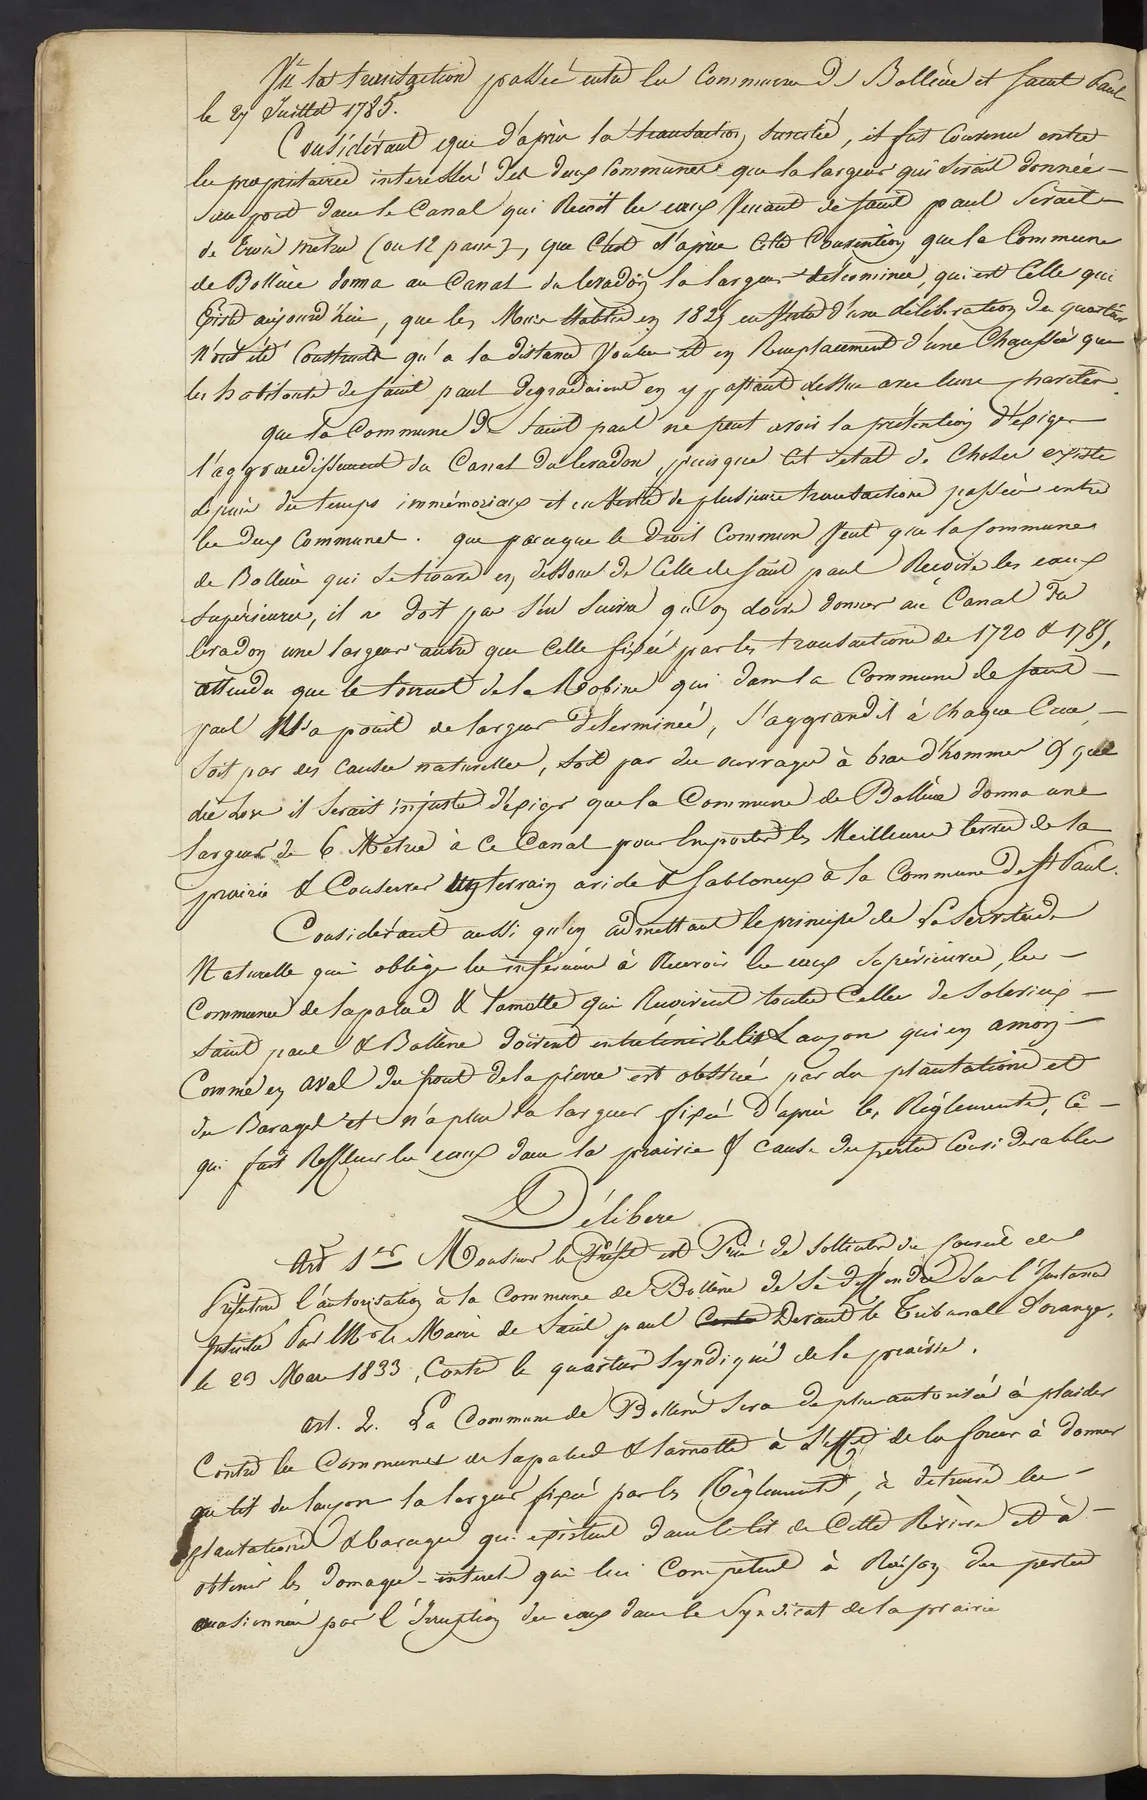 Vu la transaction passée entre les Communes de Bollène et Saint Paul
le 27 Juillet 1785.
Considérant que d'après la transaction susditte, il fut Convenu entre
les propriétaires interessés des deux Communes que la largeur qui serait donnée
au pont dans le Canal qui Reçoit les eaux Venant de saint paul serait
de trois mètres (ou 12 pans), que C'est d'après Cette Convention que la Commune
de Bollène donna au Canal du levadon la largeur déterminée, qui est Celle qui
Existe aujourd'hui, que les Murs établis en 1825 en suite d'une délibération du quartier
n'ont été Construits qu'a la distance Voulue et en Remplacement d'une Chaussée que
les habitants de saint paul degradaient en y passant dessus avec leurs charettes.
que la Commune de saint paul ne peut avoir la prétention d'éxiger
l'aggrandissement du Canal du levadon, puisque Cet état de Choses existe
depuis des temps immémoriaux et en suite de plusieurs transactions passées entre
les deux Communes. que parceque le droit Commun Veut que la Commune
de Bollène qui se trouve en dessous de Celle de saint paul Reçoive les eaux
supérieures, il ne doit pas s'en suivre qu'on doive donner au Canal du
levadon une largeur autre que Celle fixée par les transactions de 1720 & 1785,
attendu que le torrent de la Robine qui dans la Commune de saint
paul N'a point de largeur déterminée, s'aggrandit à chaque Crue,
soit par des causes naturelles, soit par des ouvrages à bras d'hommes & que
dès lors il serait injuste d'éxiger que la Commune de Bollène donna une
largeur de 6 Mètres à ce Canal pour Emporter les Meilleures terres de la
prairie & Conserver un terrain aride & sabloneux à la Commune de St Paul.
Considérant aussi qu'en admettant le principe de la servitude
Naturelle qui oblige les inférieurs à Recevoir les eaux supérieures, les
Communes de lapalud & lamotte qui Reçoivent toutes Celles de solerieux
saint paul & Bollène doivent entretenir le lit Lauzon qui en amon
Comme en aval du pont de la pierre est obstrué par des plantations et
des Barages et n'a plus la largeur fixée d'après les Réglements, Ce
qui fait Reffluer les eaux dans la prairie & cause des pertes Considerables
Délibere
Art 1er Monsieur le Préfet est Prié de solliciter du Conseil de
Préfecture l'autorisation à la Commune de Bollène de se deffendre sur l'Instance
Intentée Par Mr le Maire de Saint paul Contre Devant le Tribunal d'orange,
le 23 Mars 1833, Contre le quartier Syndiqué de la prairie.
Art. 2. La Commune de Bollène sera de plus autorisée à plaider
Contre les Communes de lapalud & lamotte à l'effet de les forcer à donner
au lit du lauzon la largeur fixée par les Réglements, à détruire les
plantations & barages qui existent dans le lit de Cette Rivière et à
obtenir les domages-interets qui lui Competent à Raison des pertes
occasionnées par l'irruption des eaux dans le Syndicat de la prairie